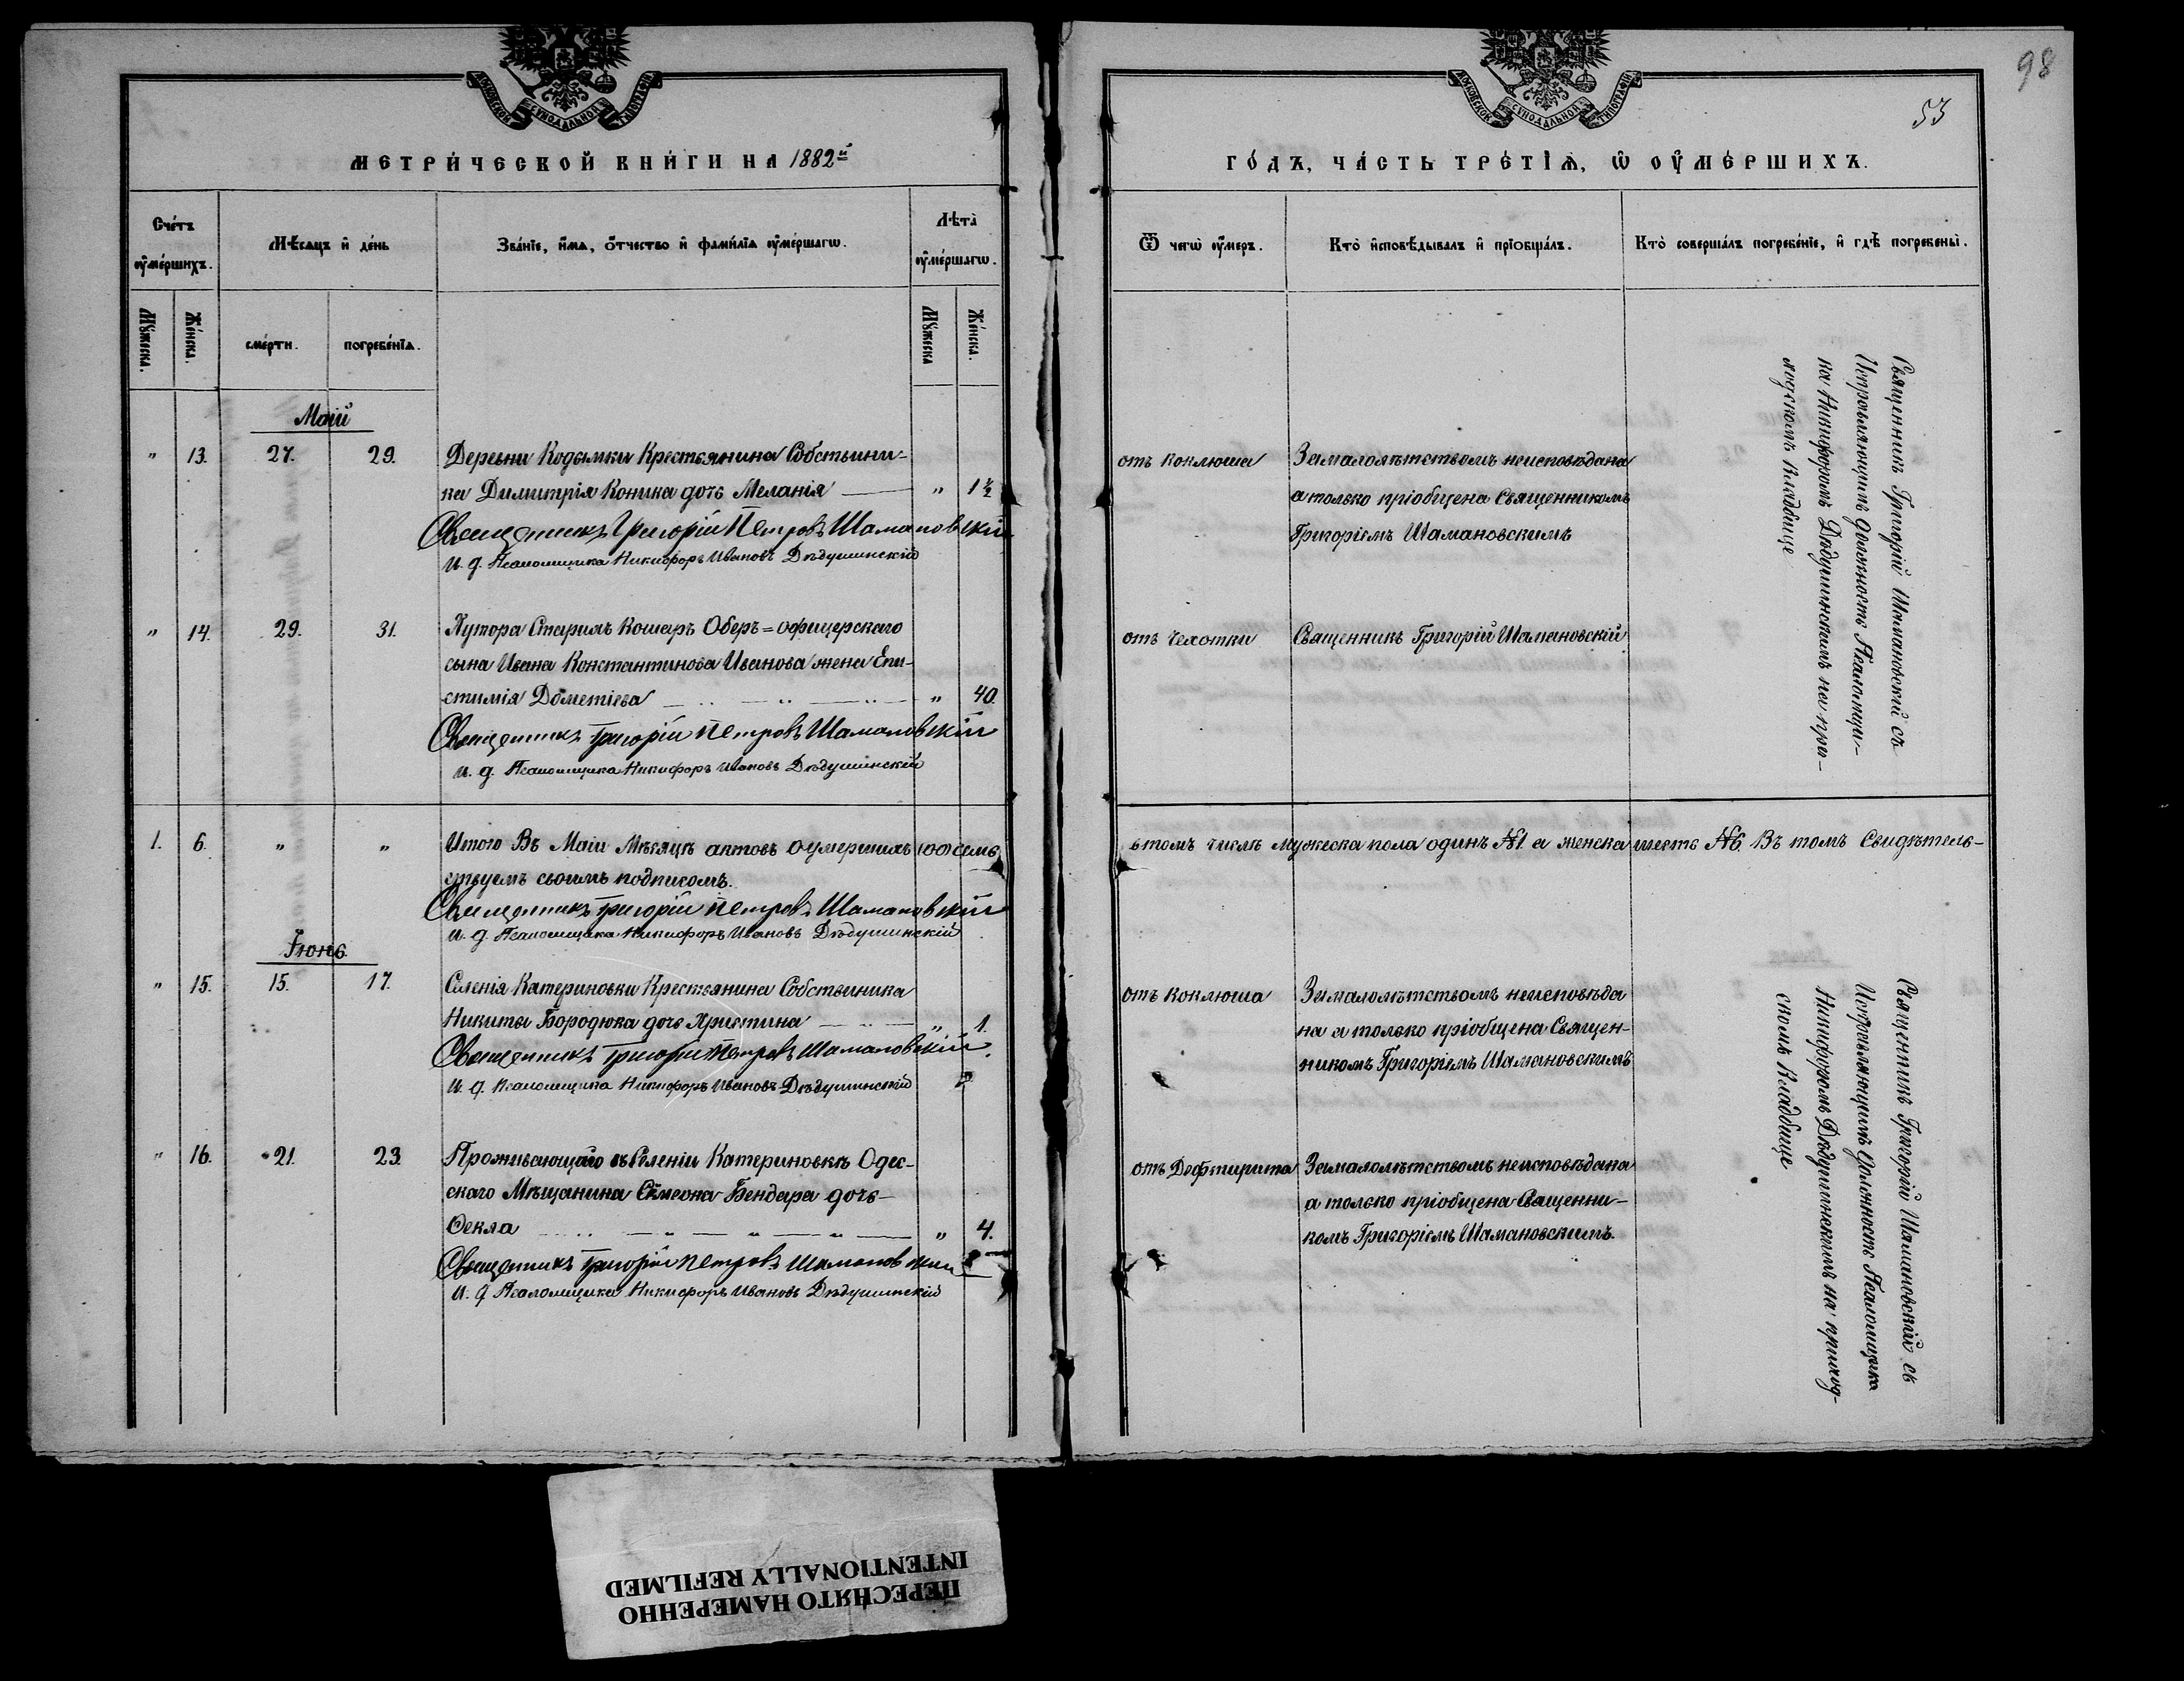 98
53
МОСКОВСКОЙ СѴНОДАЛЬНОЙ ТИПОГРАФІИ
МОСКОВСКОЙ СѴНОДАЛЬНОЙ ТИПОГРАФІИ
МЕТРИ́ЧЕСКОЙ КНИ́ГИ НА 1882й
ГО́ДЪ, ЧА́СТЬ ТРЕ́ТІѦ, Ѡ ОУ҆МЕ́РШИХЪ.
Сче́тъ оу҆ме́ршихъ.
Мѣ́сяцъ и҆ де́нь
Зва́нїе, и҆́мѧ, ѻ҆́тчество и҆ фами́лїѧ оу҆ме́ршагѡ.
Лѣта̀ оу҆ме́ршагѡ.
Ѿ чегѡ̀ оу҆́меръ.
Кто̀ и҆сповѣ́дывалъ и҆ прїѻбща́лъ.
Кто̀ соверша́лъ погребе́нїе, и҆ гдѣ̀ погребены̀.
Мꙋ́жеска.
Же́нска.
сме́рти.
погребе́нїѧ.
Мꙋ́жеска
Же́нска.
Маій
" 13. 27. 29. Деревни Кодымки Крестьянина Собственни-
ка Димитрія Коника дочь Меланія — " 1½
Священникъ Григорій Петровъ Шамановскій
и. д. Псаломщика Никифоръ Ивановъ Дѣдушинскій
отъ коклюша
Замалолѣтствомъ неисповѣдана
а только пріобщена Священникомъ
Григоріемъ Шамановскимъ
Священникъ Григорій Шамановскій съ
Исправляющимъ должность Псаломщи-
ка Никифоромъ Дѣдушинскимъ на при-
ходскомъ кладбище
" 14. 29. 31. Хутора Старыхъ Кошаръ Оберъ=офицерскаго
сына Ивана Константинова Иванова жена Епи-
стимія Дометіева — " 40.
Священникъ Григорій Петровъ Шамановскій
и. д. Псаломщика Никифоръ Ивановъ Дѣдушинскій
отъ чахотки
Священникъ Григорій Шамановскій
1. 6. " " Итого Въ Маіи Мѣсяцѣ актовъ оумершихъ семь
в томъ числѣ мужеска пола одинъ №1 а женска шесть №6. Въ томъ Свидѣтель-
ствуемъ своимъ подписомъ.
Священникъ Григорій Петровъ Шамановскій
и. д. Псаломщика Никифоръ Ивановъ Дѣдушинскій
Іюнь
" 15. 15. 17. Селенія Катериновки Крестьянина Собственника
Никиты Бородюка дочь Христина — " 1.
Священникъ Григорій Петровъ Шамановскій.
и. д. Псаломщика Никифоръ Ивановъ Дѣдушинскій
отъ коклюша
Замалолѣтствомъ неисповѣда
на а только пріобщена Священ-
никомъ Григоріемъ Шамановскимъ
Священникъ Григорій Шамановскій съ
Исправляющимъ должность Псаломщика
Никифоромъ Дѣдушинскимъ на приход-
скомъ кладбище
" 16. 21. 23. Проживающаго въ Селеніи Катериновкѣ Одес-
скаго Мѣщанина Сѵмеона Бендара дочь
Ѳекла — " 4.
Священникъ Григорій Петровъ Шамановскій
И. д Псаломщика Никифоръ Ивановъ Дѣдушинскій
отъ Дефтирита
Замалолѣтствомъ неисповѣдана
а только пріобщена Священни-
комъ Григоріемъ Шамановскимъ.
ПЕРЕСНЯТО НАМЕРЕННО
INTENTIONALLY REFILMED